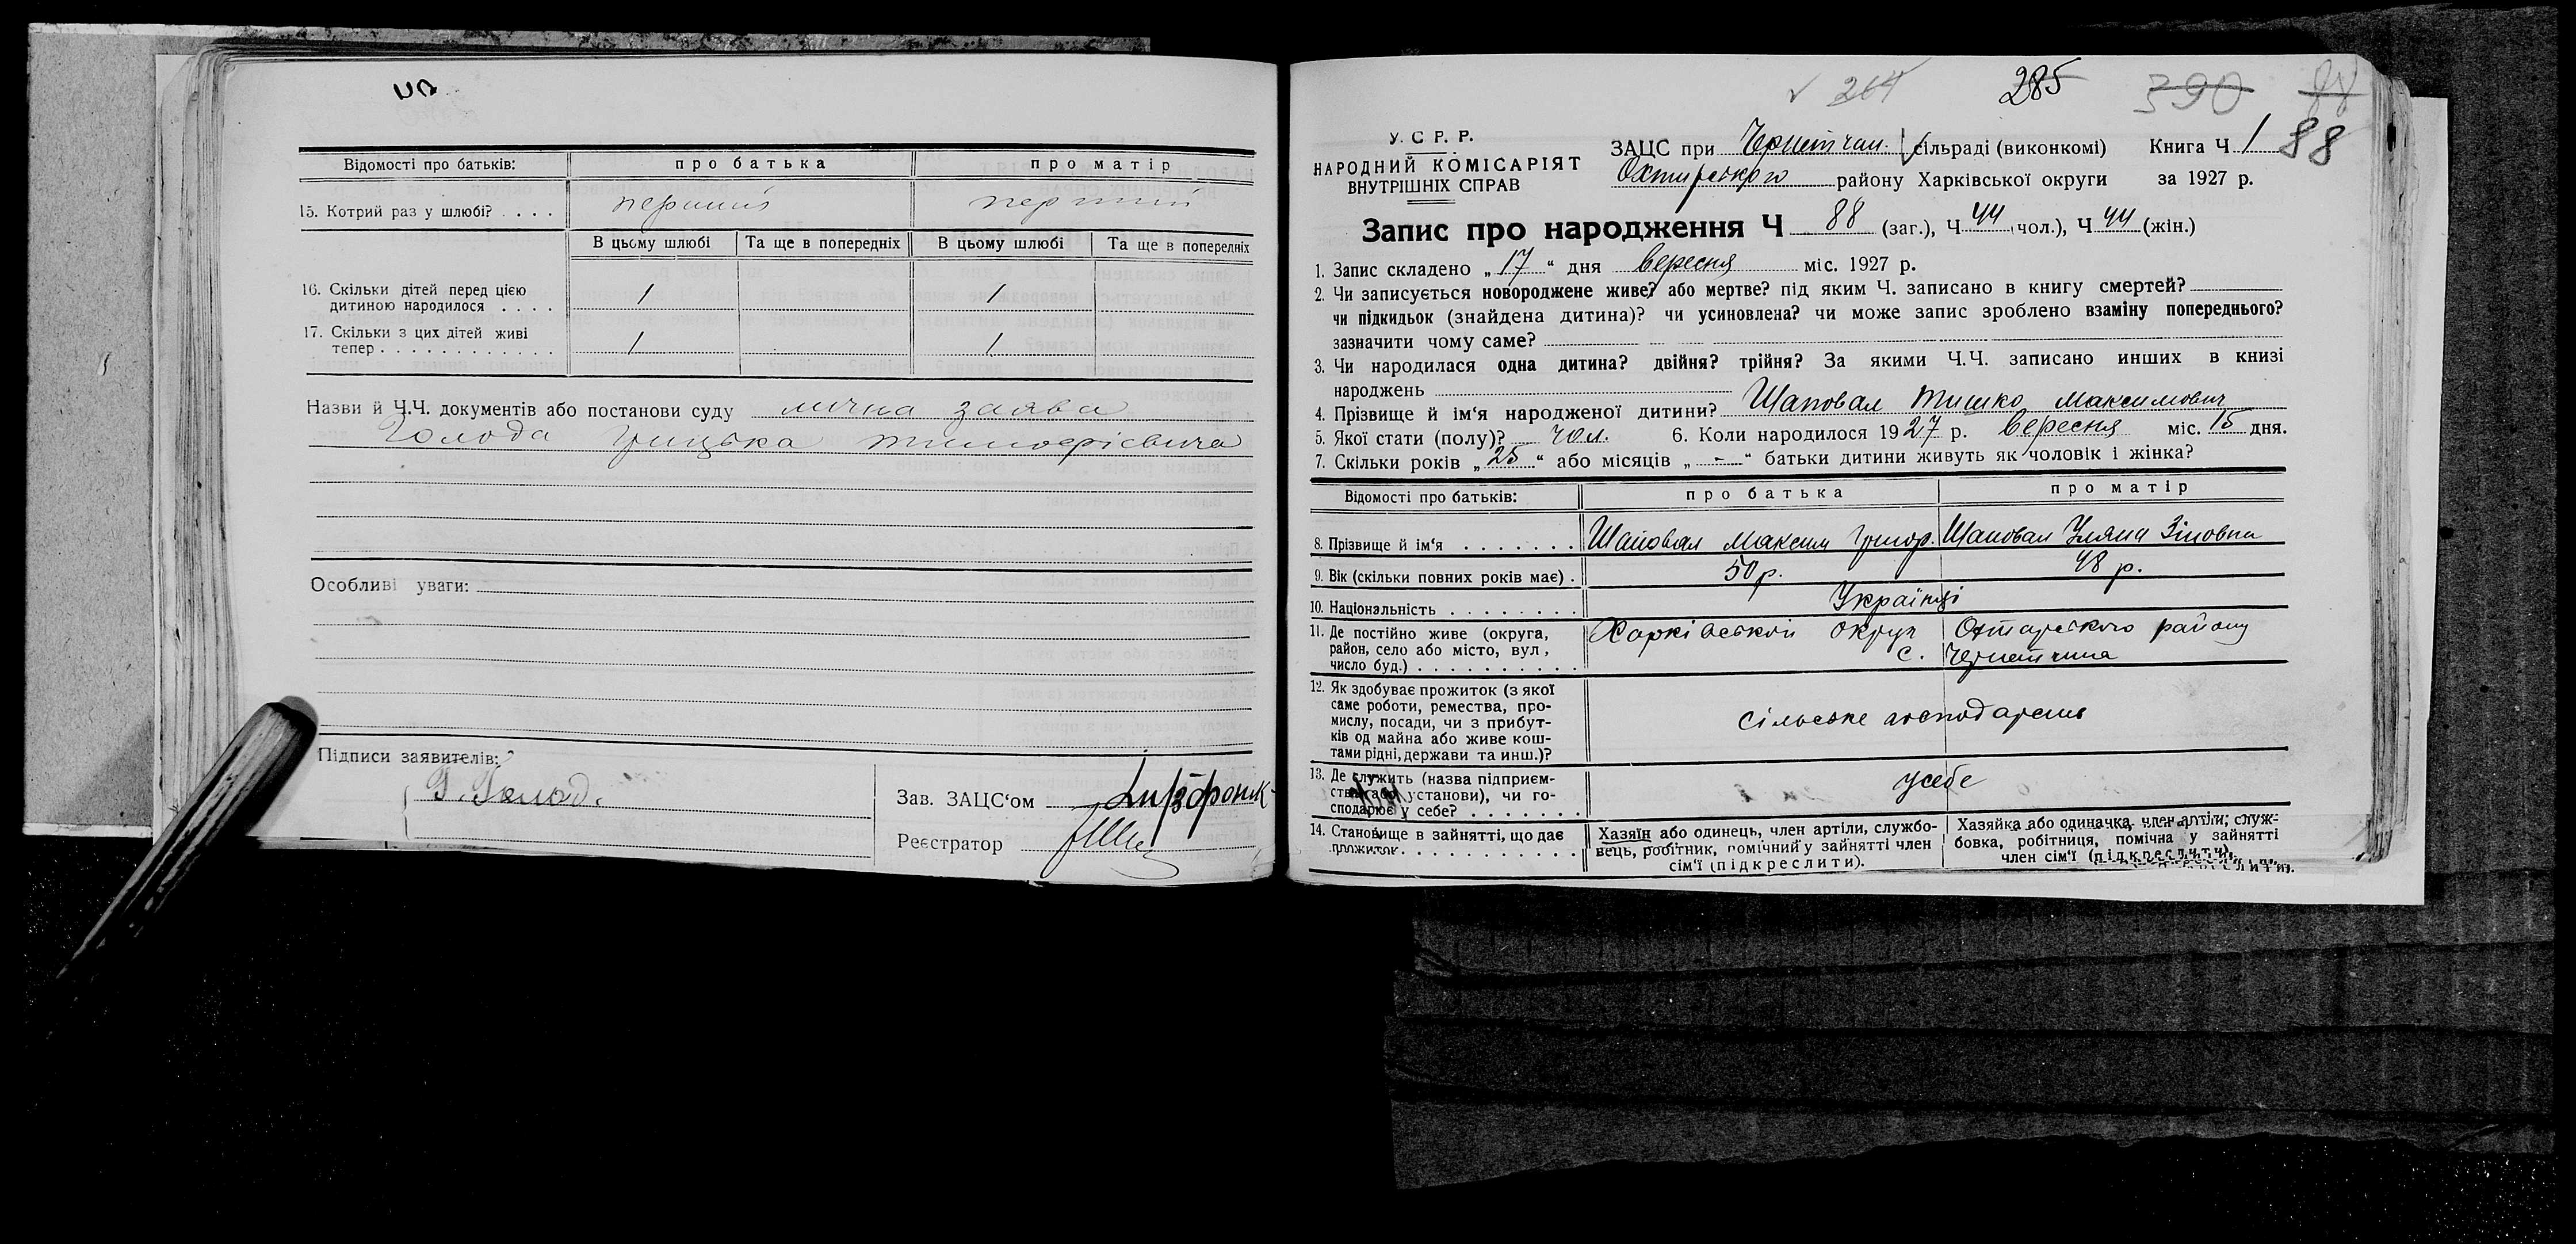 Відомості про батьків: про батька про матір
15. Котрий раз у шлюбі? . . . . перший перший
В цьому шлюбі Та ще в попередніх В цьому шлюбі Та ще в попередніх
16. Скільки дітей перед цією
дитиною народилося . . . . 1 1
17. Скільки з цих дітей живі
тепер . . . . . . . . . . . . . 1 1
Назви й Ч.Ч. документів або постанови суду лична заява
Голода Грицька Тимофієвича
Особливі уваги:
Підписи заявителів:
Г. Голод.
Зав. ЗАЦС‘ом
Реєстратор
264 285 390 88
У. С Р. Р.
НАРОДНИЙ КОМІСАРІЯТ
ВНУТРІШНІХ СПРАВ
ЗАЦС при Чернетчан. сільраді (виконкомі) Книга Ч 1 88
Охтирського району Харківської округи за 1927 р.
Запис про народження Ч 88 (заг.), Ч 44 чол.), Ч 44 (жін.)
1. Запис складено „ 17 “ дня вересня міс. 1927 р.
2. Чи записується новороджене живе? або мертве? під яким Ч. записано в книгу смертей?
чи підкидьок (знайдена дитина)? чи усиновлена? чи може запис зроблено взаміну попереднього?
зазначити чому саме?
3. Чи народилася одна дитина? двійня? трійня? За якими Ч.Ч. записано инших в книзі
народжень
4. Прізвище й ім‘я народженої дитини? Шаповал Тишко Максимович
5. Якої стати (полу)? чол. 6. Коли народилося 19 27 р. вересня міс. 15 дня.
7. Скільки років „ 25 “ або місяців „ - “ батьки дитини живуть як чоловік і жінка?
Відомості про батьків: про батька про матір
8. Прізвище й ім‘я . . . . . . . Шаповал Максим Григор. Шаповал Уляна Зіновна
9. Вік (скільки повних років має) . 50 р. 48 р.
10. Національність . . . . . . . . Українці
11. Де постійно живе (округа, Харківськой округи Охтирського району
район, село або місто, вул., с. Чернетчина
число буд.) . . . . . . . . . .
12. Як здобуває прожиток (з якої
саме роботи, ремества, про-
мислу, посади, чи з прибут- сільське господарство
ків од майна або живе кош-
тами рідні, держави та инш.)?
13. Де служить (назва підприєм- усебе
ства або установи), чи го-
сподарює у себе? . . . . . . .
14. Становище в зайнятті, що дає Хазяїн або одинець, член артіли, службо- Хазяйка або одиначка, член артіли, служ-
прожиток . . . . . . . . . . . вець, робітник, помічний у зайнятті член бовка, робітниця, помічна у зайнятті
сім‘ї (підкреслити). член сім‘ї (підкреслити).